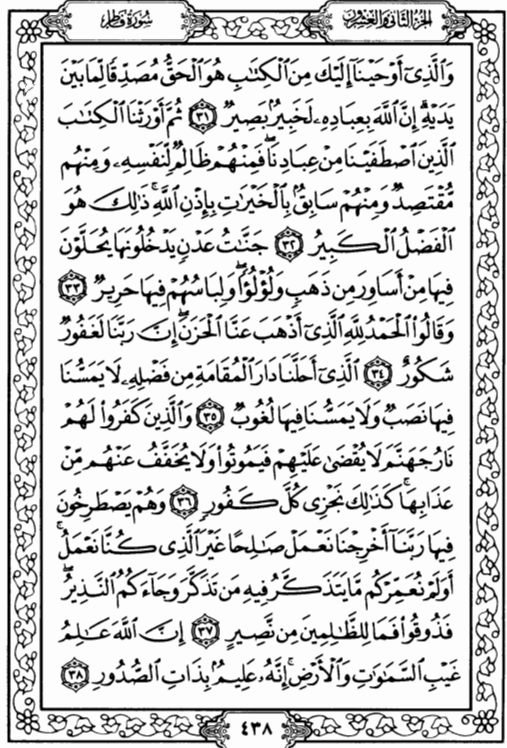 الجزء الثاني والعشرون
سورة فاطر
وَالَّذِي أَوْحَيْنَا إِلَيْكَ مِنَ الْكِتَابِ هُوَ الْحَقُّ مُصَدِّقًا لِمَا بَيْنَ
يَدَيْهِ ۗ إِنَّ اللَّهَ بِعِبَادِهِ لَخَبِيرٌ بَصِيرٌ ٣١ ثُمَّ أَوْرَثْنَا الْكِتَابَ
الَّذِينَ اصْطَفَيْنَا مِنْ عِبَادِنَا ۖ فَمِنْهُمْ ظَالِمٌ لِنَفْسِهِ وَمِنْهُم
مُّقْتَصِدٌ وَمِنْهُمْ سَابِقٌ بِالْخَيْرَاتِ بِإِذْنِ اللَّهِ ۚ ذَٰلِكَ هُوَ
الْفَضْلُ الْكَبِيرُ ٣٢ جَنَّاتُ عَدْنٍ يَدْخُلُونَهَا يُحَلَّوْنَ
فِيهَا مِنْ أَسَاوِرَ مِن ذَهَبٍ وَلُؤْلُؤًا ۖ وَلِبَاسُهُمْ فِيهَا حَرِيرٌ ٣٣
وَقَالُوا الْحَمْدُ لِلَّهِ الَّذِي أَذْهَبَ عَنَّا الْحَزَنَ ۖ إِنَّ رَبَّنَا لَغَفُورٌ
شَكُورٌ ٣٤ الَّذِي أَحَلَّنَا دَارَ الْمُقَامَةِ مِن فَضْلِهِ لَا يَمَسُّنَا
فِيهَا نَصَبٌ وَلَا يَمَسُّنَا فِيهَا لُغُوبٌ ٣٥ وَالَّذِينَ كَفَرُوا لَهُمْ
نَارُ جَهَنَّمَ لَا يُقْضَىٰ عَلَيْهِمْ فَيَمُوتُوا وَلَا يُخَفَّفُ عَنْهُم مِّنْ
عَذَابِهَا ۚ كَذَٰلِكَ نَجْزِي كُلَّ كَفُورٍ ٣٦ وَهُمْ يَصْطَرِخُونَ
فِيهَا رَبَّنَا أَخْرِجْنَا نَعْمَلْ صَالِحًا غَيْرَ الَّذِي كُنَّا نَعْمَلُ ۚ
أَوَلَمْ نُعَمِّرْكُم مَّا يَتَذَكَّرُ فِيهِ مَن تَذَكَّرَ وَجَاءَكُمُ النَّذِيرُ ۖ
فَذُوقُوا فَمَا لِلظَّالِمِينَ مِن نَّصِيرٍ ٣٧ إِنَّ اللَّهَ عَالِمُ
غَيْبِ السَّمَاوَاتِ وَالْأَرْضِ ۚ إِنَّهُ عَلِيمٌ بِذَاتِ الصُّدُورِ ٣٨
٤٣٨